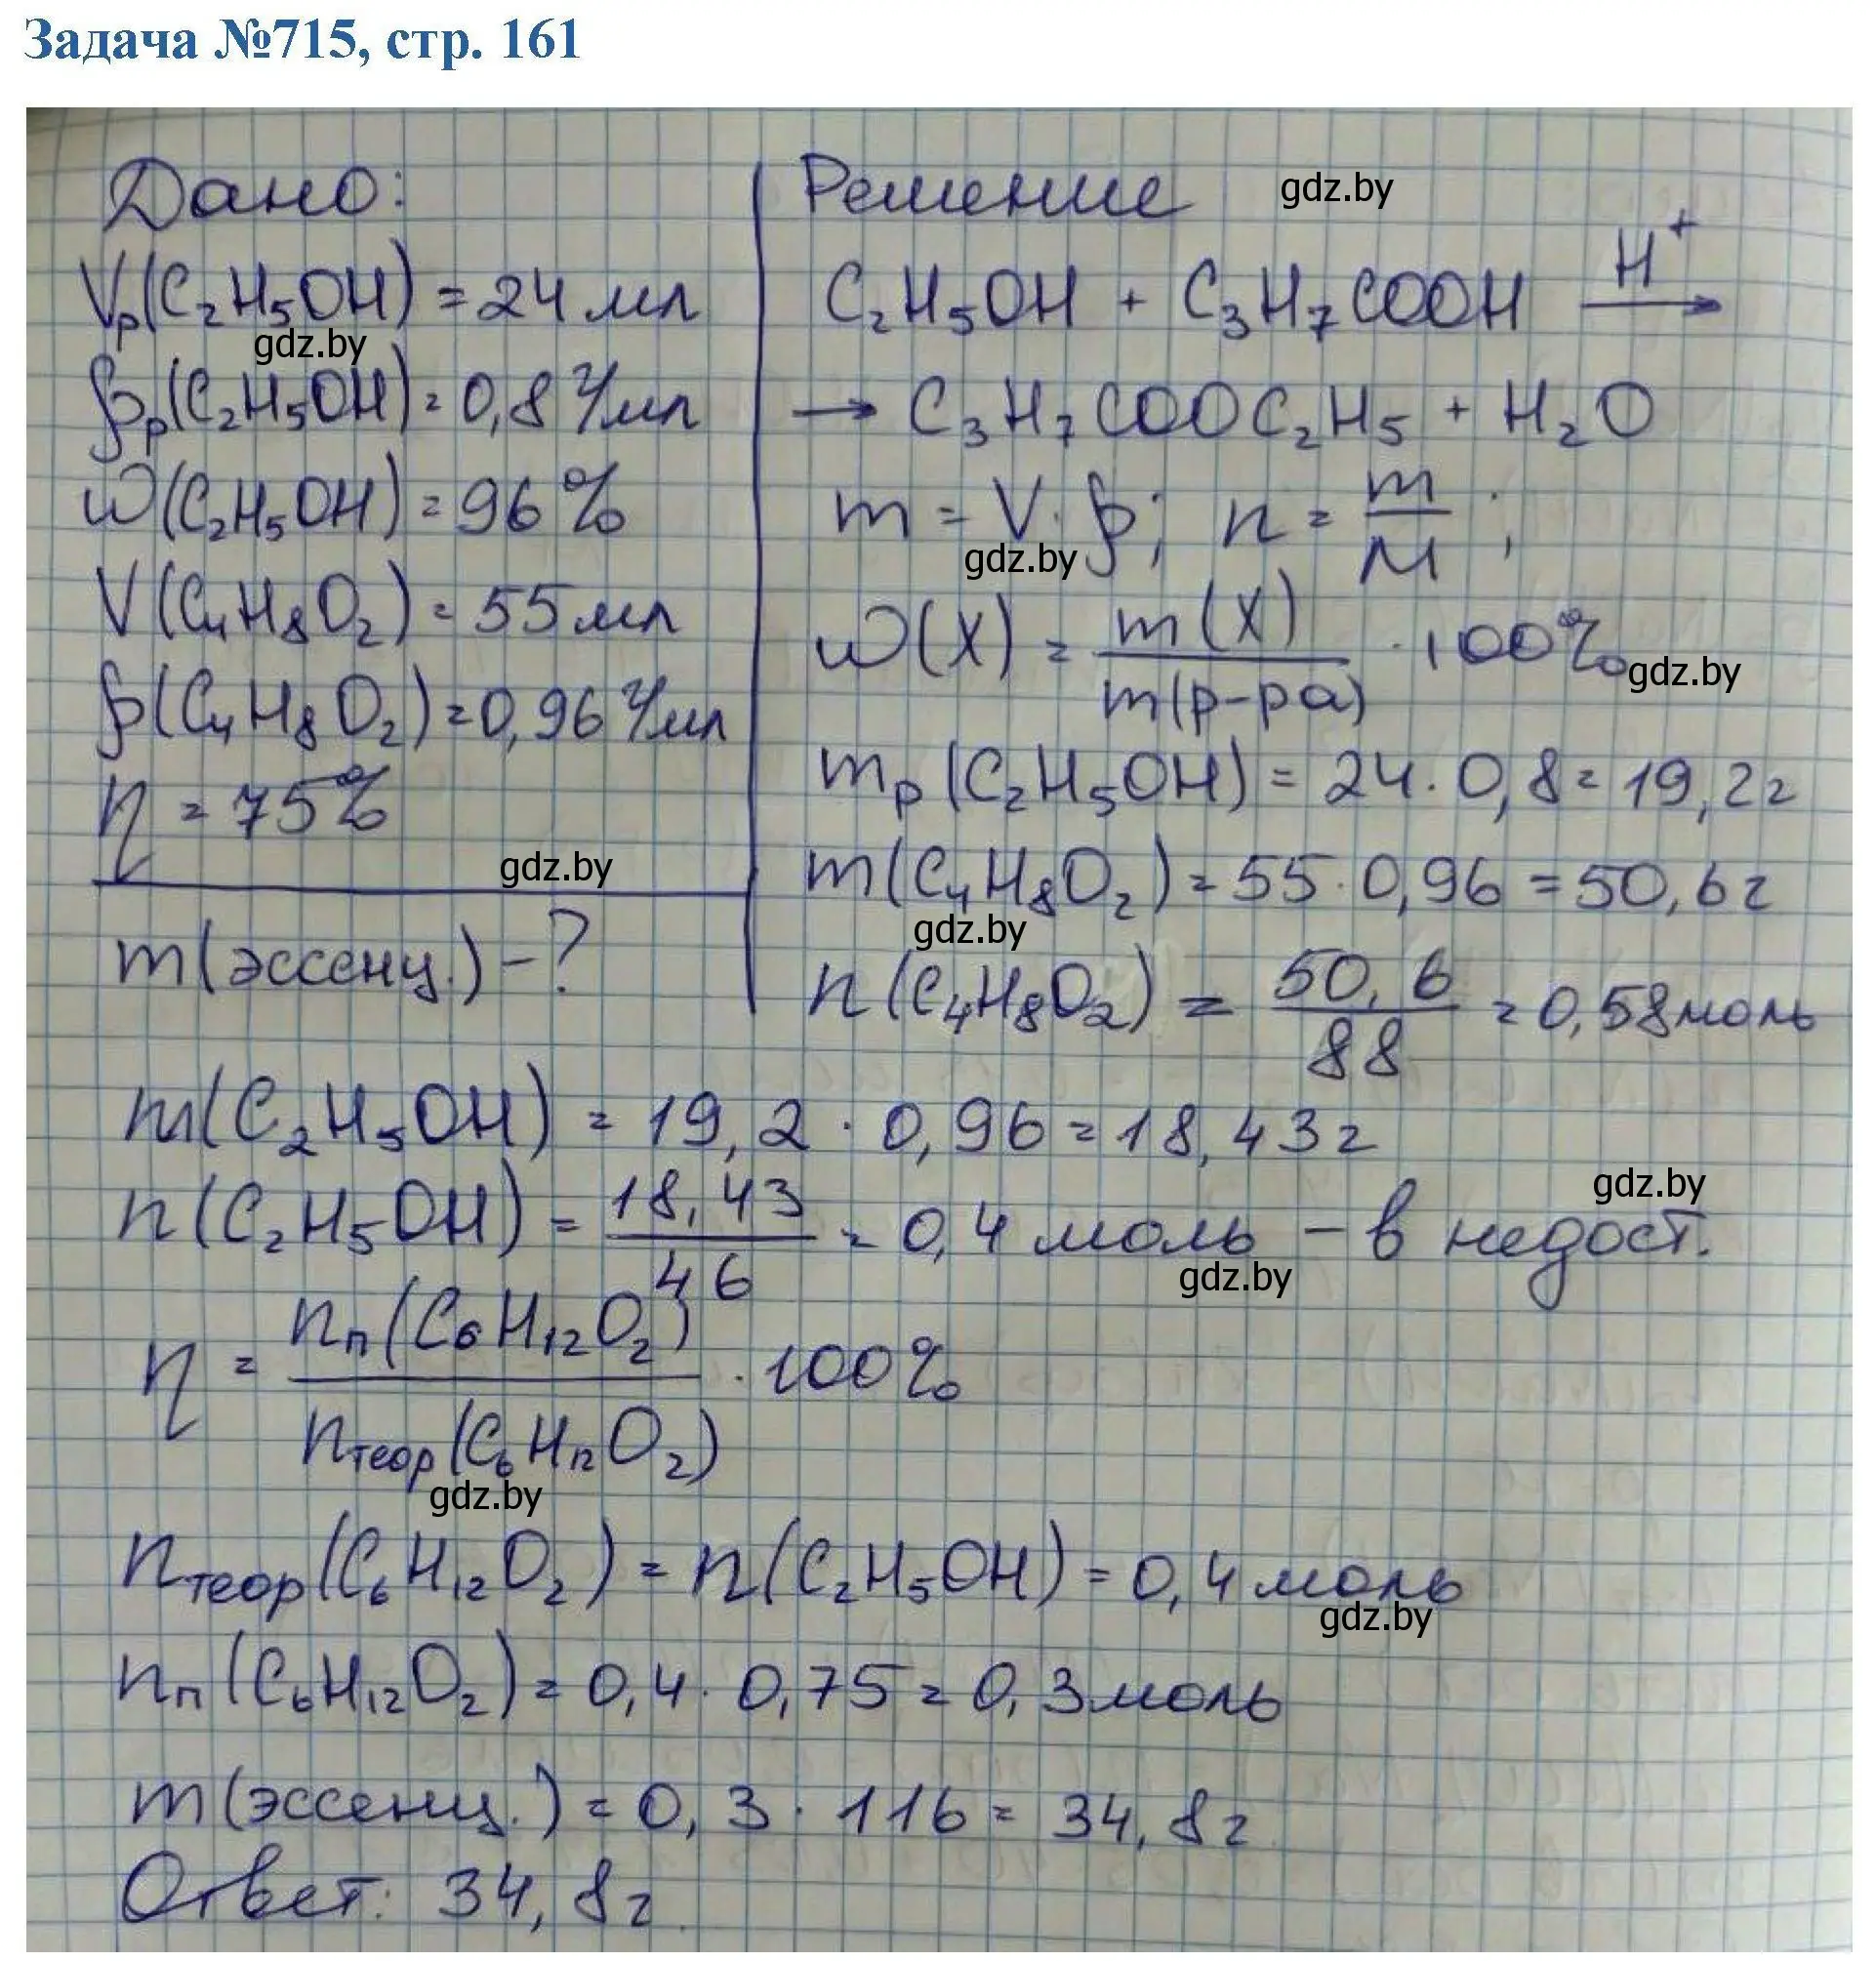 Задача №715, стр. 161
Дано:
Vр(C₂H₅OH) = 24 мл
ρр(C₂H₅OH) = 0,8 г/мл
ω(C₂H₅OH) = 96 %
V(C₄H₈O₂) = 55 мл
ρ(C₄H₈O₂) = 0,96 г/мл
η = 75%
m(эссенц.) - ?
Решение
C₂H₅OH + C₃H₇COOH —H⁺→
→ C₃H₇COOC₂H₅ + H₂O
m = V · ρ; n = m/M ;
ω(X) = m(X)/m(р-ра) · 100%
mр(C₂H₅OH) = 24 · 0,8 = 19,2 г
m(C₄H₈O₂) = 55 · 0,96 = 50,6 г
n(C₄H₈O₂) = 50,6/88 = 0,58 моль
m(C₂H₅OH) = 19,2 · 0,96 = 18,43 г
n(C₂H₅OH) = 18,43/46 = 0,4 моль – в недост.
η = nп(C₆H₁₂O₂)/nтеор(C₆H₁₂O₂) · 100%
nтеор(C₆H₁₂O₂) = n(C₂H₅OH) = 0,4 моль
nп(C₆H₁₂O₂) = 0,4 · 0,75 = 0,3 моль
m(эссенц.) = 0,3 · 116 = 34,8 г
Ответ: 34,8 г.
gdz.by
gdz.by
gdz.by
gdz.by
gdz.by
gdz.by
gdz.by
gdz.by
gdz.by
gdz.by